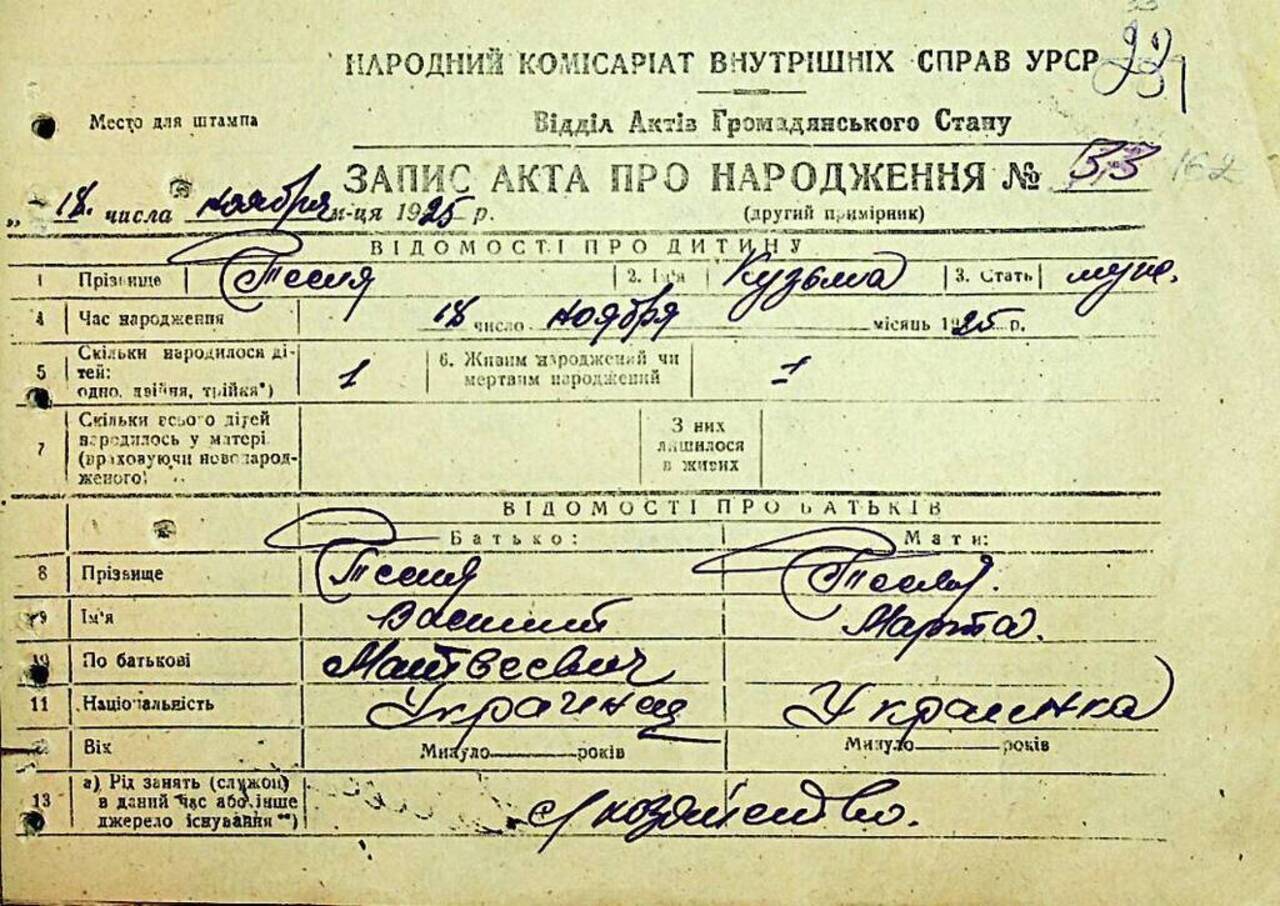 НАРОДНИЙ КОМІСАРІАТ ВНУТРІШНІХ СПРАВ УРСР
Место для штампа
Відділ Актів Громадянського Стану
ЗАПИС АКТА ПРО НАРОДЖЕННЯ № 33 162
„ 18. числа ноября м-ця 1925 р. (другий примірник)
ВІДОМОСТІ ПРО ДИТИНУ
1 Прізвище Тесля 2. Ім'я Кузьма 3. Стать муж.
4 Час народження 18 число ноября місяць 1925 р.
5 Скільки народилося ді-
тей:
одно, двійня, трійка*) 1 6. Живим народжений чи
мертвим народжений 1
7 Скільки всього дітей
народилось у матері
(враховуючи новонарод-
женого) З них
лишилося
в живих
ВІДОМОСТІ ПРО БАТЬКІВ
Батько: Мати:
8 Прізвище Тесля Тесля.
9 Ім'я Василий Марта.
10 По батькові Матвеевич
11 Національність Украинец Украинка
Вік Минуло років Минуло років
13 а) Рід занять (служби)
в даний час або інше
джерело існування**) с/хозяйство.